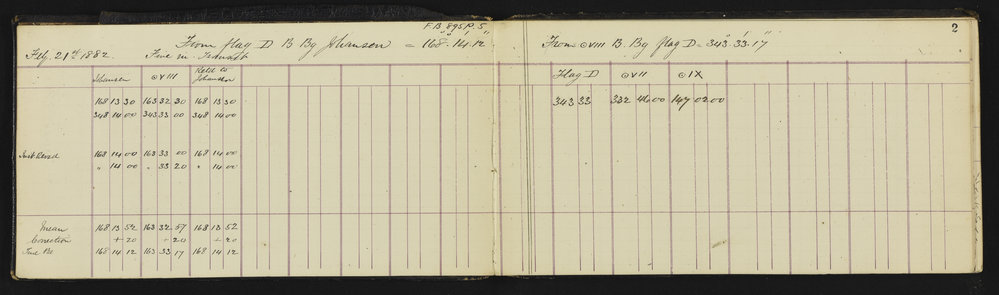 F.B. 895 P. 5
2
From flag D B By Johansen = 168° 14' 12"
Feby. 21st 1882. Fine in
Johansen ⊙VIII Retd to Johansen
168 13 30 163 32 30 168 13 30
348 14 00 343 33 00 348 14 00
Inst Revsd 168 14 00 163 33 00 168 14 00
" 14 00 " 33 20 " 14 00
Mean 168 13 52 163 32 57 168 13 52
Correction + 20 - 20 + 20
True Be 168 14 12 163 33 17 168 14 12
From ⊙VIII B. By flag D = 343° 33' 17"
Flag D ⊙VII ⊙IX
343 33 332 46 00 147 02 00